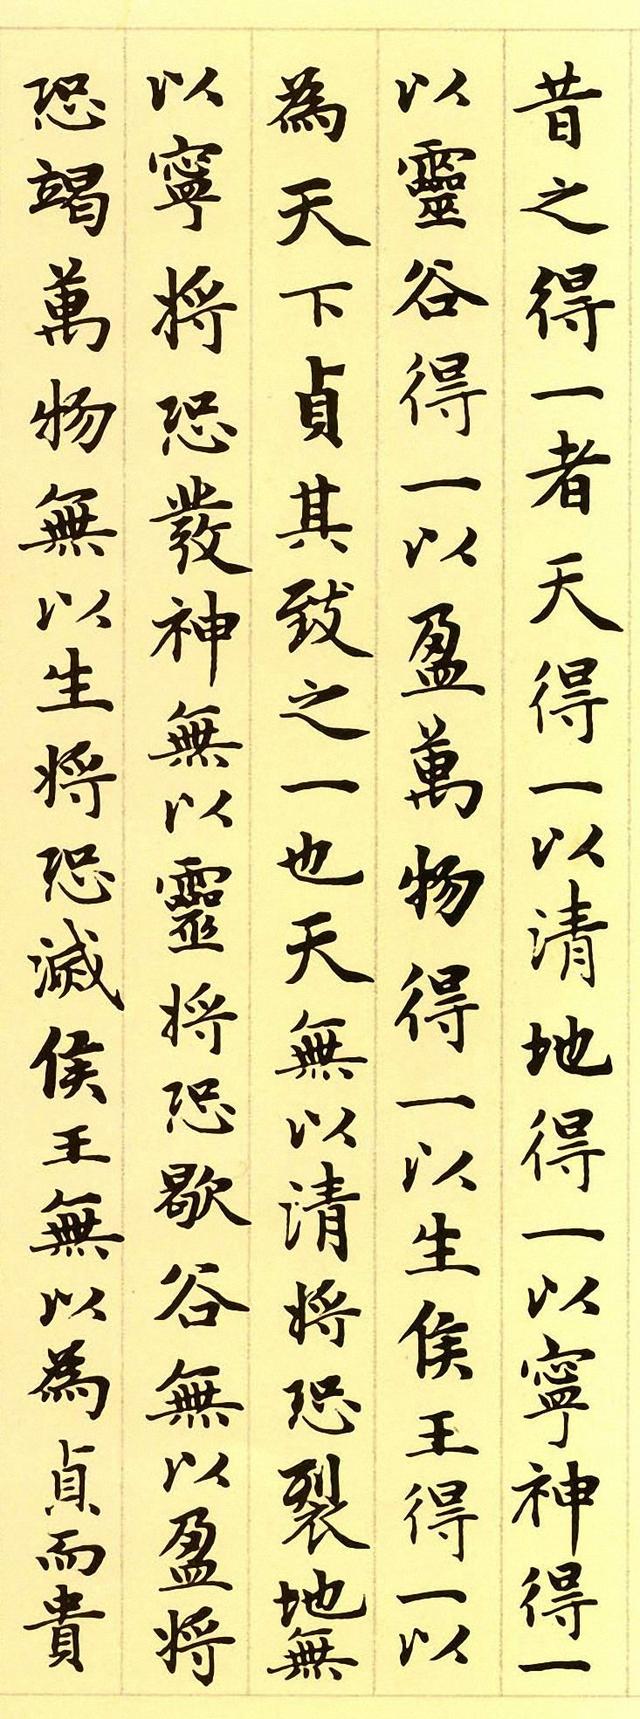 昔之得一者天得一以清地得一以寧神得一
以靈谷得一以盈萬物得一以生侯王得一以
為天下貞其致之一也天無以清將恐裂地無
以寧將恐發神無以靈將恐歇谷無以盈將
恐竭萬物無以生將恐滅侯王無以為貞而貴